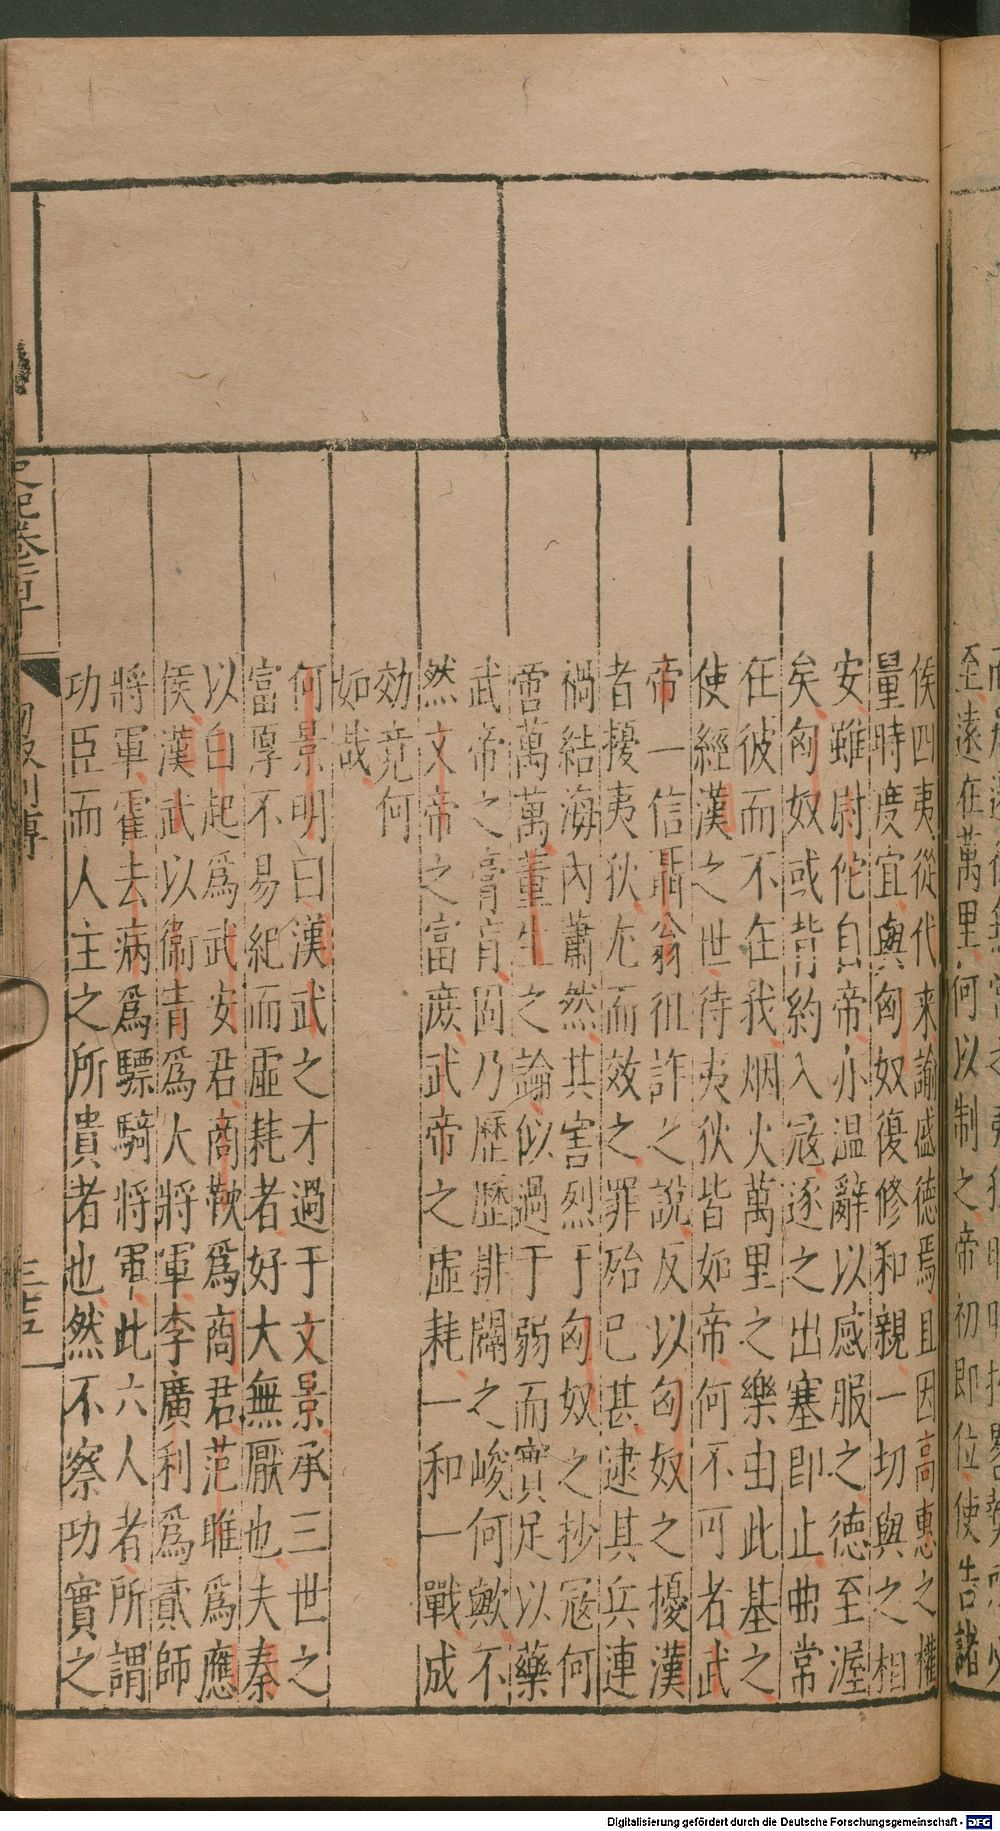 至遠在萬里何以制之帝初即位使告諸
侯四夷從代来諭盛徳焉且因高惠之權
量時度宜與匈奴復修和親一切與之相
安雖尉佗自帝亦温辭以感服之徳至渥
矣匈奴或背約入冦逐之出塞即止曲常
在彼而不在我烟火萬里之樂由此基之
使經漢之世待夷狄皆如帝何不可者武
帝一信聶翁徂詐之說反以匈奴之擾漢
者擾夷狄尤而效之罪殆已甚逮其兵連
禍結海內蕭然其害烈于匈奴之抄冦何
啻萬萬董生之論似過于弱而實足以藥
武帝之膏肓固乃歷歷排闢之峻何歟不
然文帝之富庶武帝之虛耗一和一戰成
効竟何
如哉
何景明曰漢武之才過于文景承三世之
富厚不易紀而虛耗者好大無厭也夫秦
以白起爲武安君商鞅爲商君范睢爲應
侯漢武以衞青爲大將軍李廣利爲貳師
將軍霍去病爲驃騎將軍此六人者所謂
功臣而人主之所貴者也然不察功實之
史記卷一百十
匈奴列傳
三十五
Digitalisierung gefördert durch die Deutsche Forschungsgemeinschaft - DFG